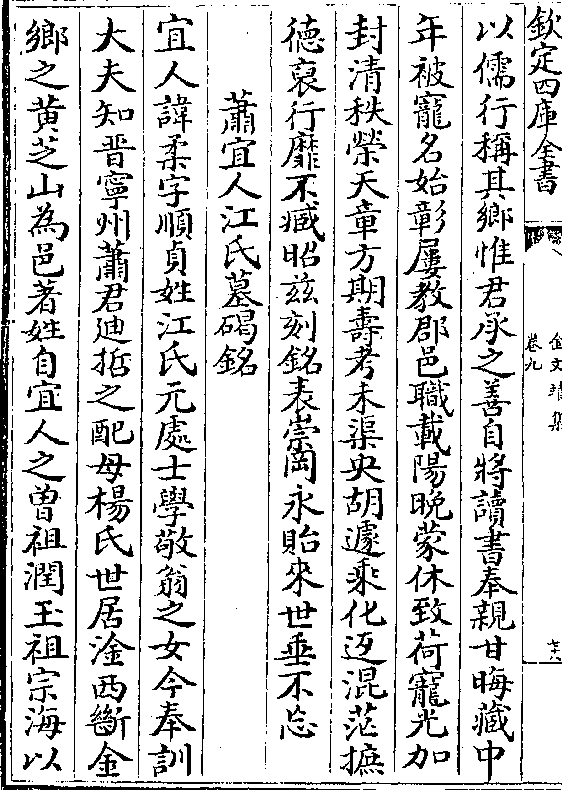 欽定四庫全書
金文靖集
卷九
六
以儒行稱其鄉惟君承之善自將讀書奉親甘晦藏中
年被寵名始彰屢教郡邑職載陽晚蒙休致荷寵光加
封清秩榮天章方期壽考未渠央胡遽乘化迈混茫摭
德裒行靡不臧昭茲刻銘表崇岡永貽來世垂不忘
蕭宜人江氏墓碣銘
宜人諱柔字順貞姓江氏元處士學敬翁之女今奉訓
大夫知晋寧州蕭君迪哲之配母楊氏世居淦西斷金
鄉之黄芝山為邑著姓自宜人之曽祖潤玉祖宗海以